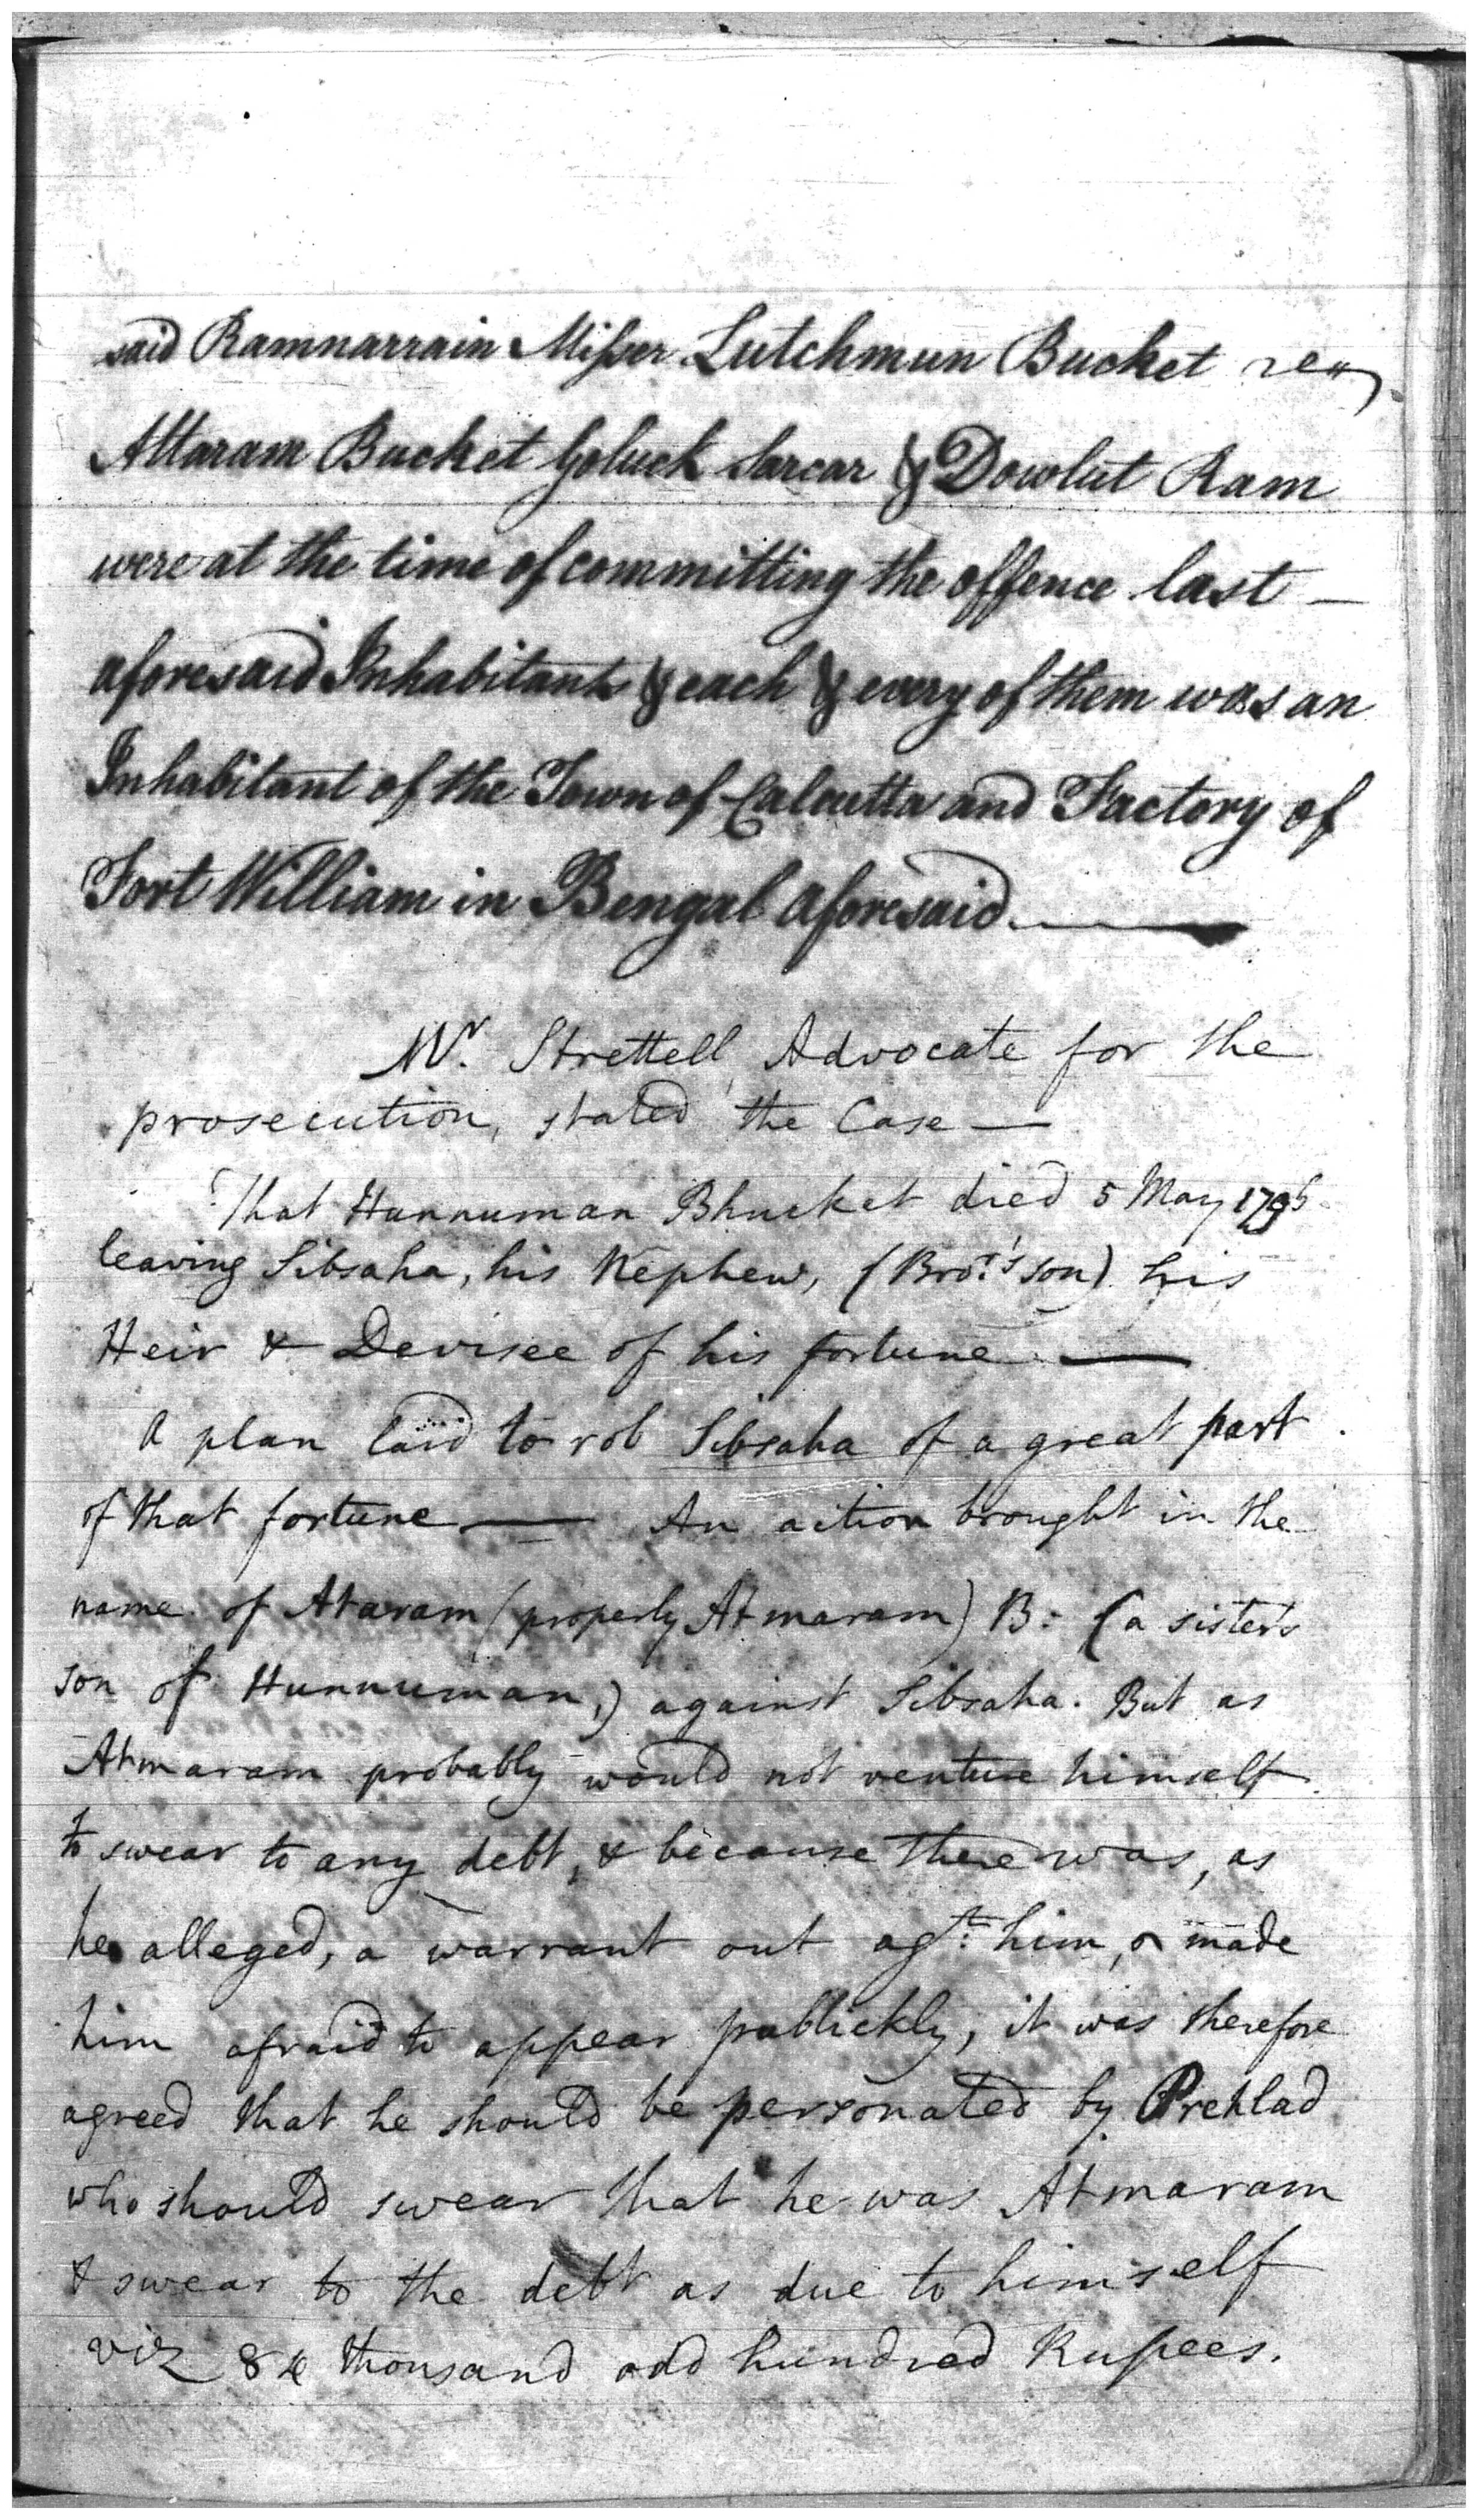 said Ramnarrain Misser Lutchmun Bucket
Attaram Bucket Goluck Sarcar & Dowlut Ram
were at the time of committing the offence last —
aforesaid Inhabitants & each & every of them was an
Inhabitant of the Town of Calcutta and Factory of
Fort William in Bengal aforesaid —
Mr. Strettell, Advocate for the
prosecution, stated the Case —
That Hunnuman Bhucket died 5 May
leaving Sibsaha, his Nephew, (Bror.'s son) his
Heir & Devisee of his fortune —
A plan laid to rob Sibsaha of a great part
of that fortune — An action brought in the
name of Ataram (properly Atmaram) B: (a sister's
son of Hunnuman,) against Sibsaha. But as
Atmaram probably would not venture himself
to swear to any debt, & because there was, as
he alleged, a warrant out agt. him, & made
him afraid to appear publickly, it was therefore
agreed that he should be personated by Prehlad
who should swear that he was Atmaram
& swear to the debt as due to himself
viz 84 thousand odd hundred Rupees.